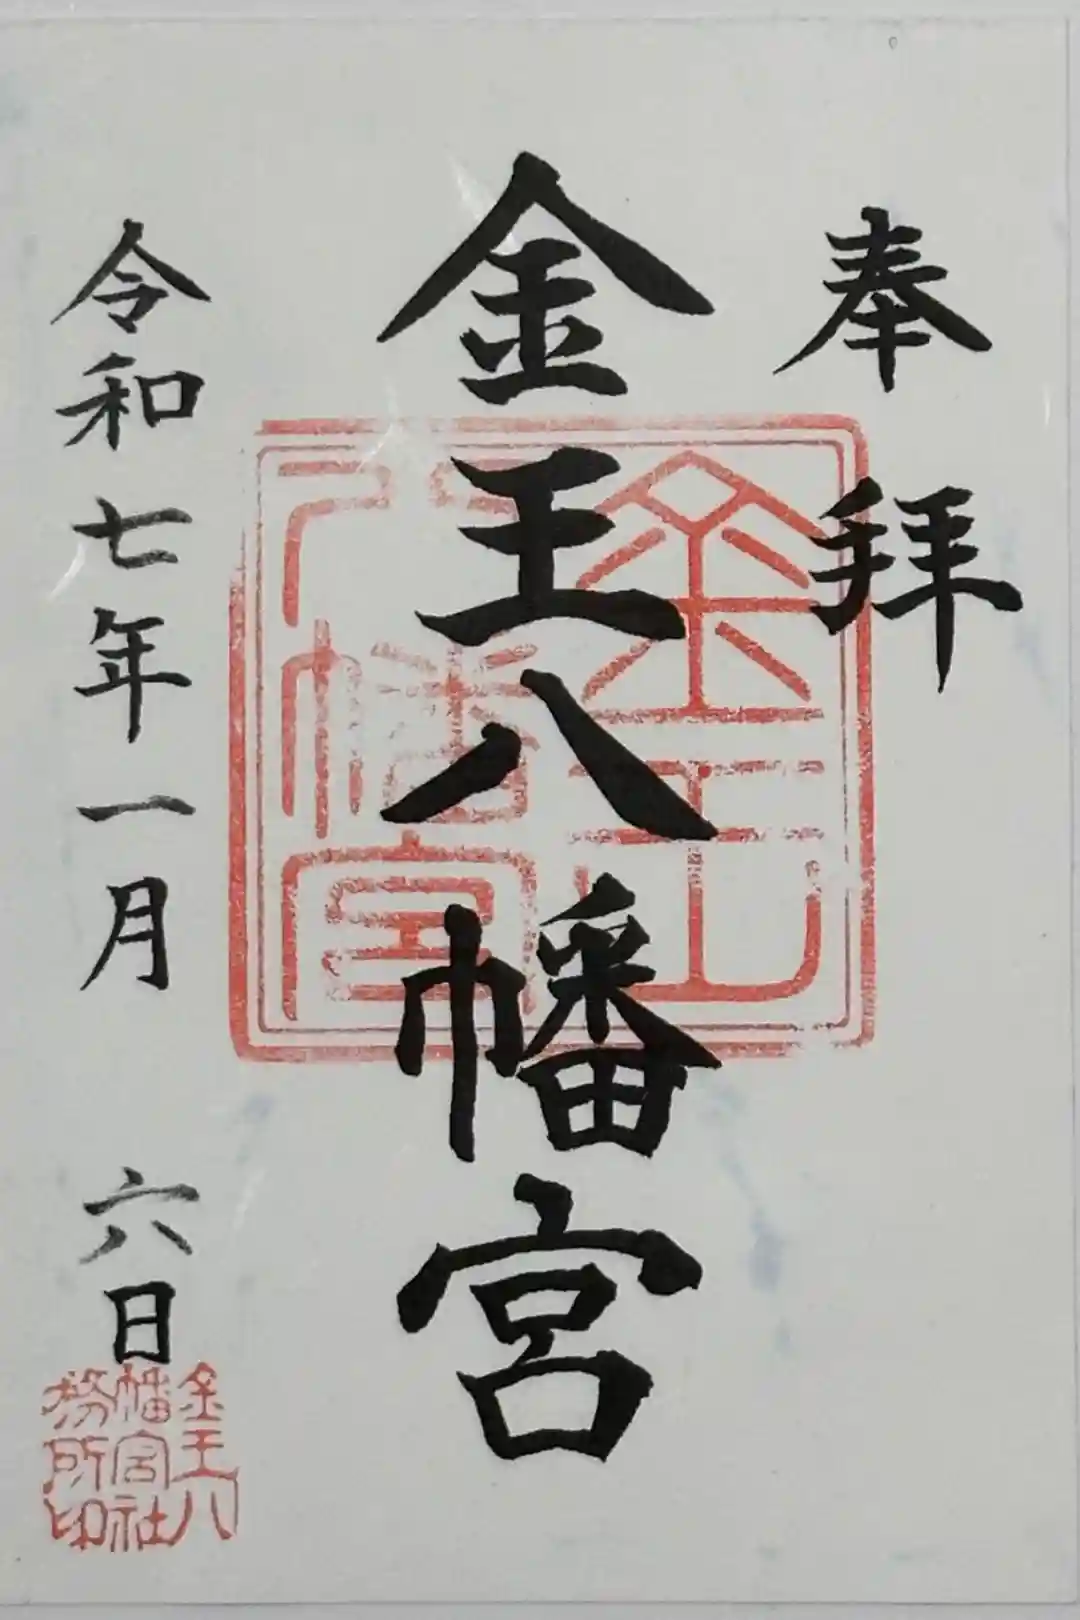 奉拝
金王八幡宮
令和七年一月六日
金王八
幡宮社
務所印